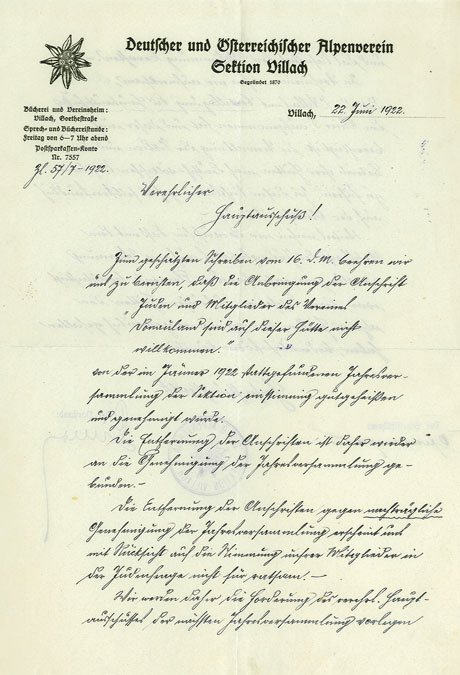 Deutscher und Österreichischer Alpenverein
Sektion Villach
Gegründet 1870
Bücherei und Vereinsheim:
Villach, Goethestraße
Sprech- und Büchereistunde:
Freitag von 6—7 Uhr abend
Postsparkassen-Konto
Nr. 7557
Villach, 22. Juni 1922.
Zl. 57/7-1922.
Verehrlicher
Hauptausschuß!
Zum geschätzten Schreiben vom 16. d. M. beehren wir
uns zu berichten, daß die Anbringung der Anschrift
"Juden und Mitglieder des Vereines
Donauland sind auf dieser Hütte nicht
willkommen."
von der im Jänner 1922 stattgefundenen Jahresver-
sammlung der Sektion einstimmig gutgeheißen
und genehmigt wurde.
Die Entfernung der Anschriften ist daher wieder
an die Genehmigung der Jahresversammlung ge-
bunden.-
Die Entfernung der Anschriften gegen nachträgliche
Genehmigung der Jahresversammlung erscheint uns
mit Rücksicht auf die Stimmung unserer Mitglieder in
der Judenfrage nicht für ratsam.-
Wir werden daher die Forderung des verehrl. Haupt-
ausschußes der nächsten Jahresversammlung vorlegen